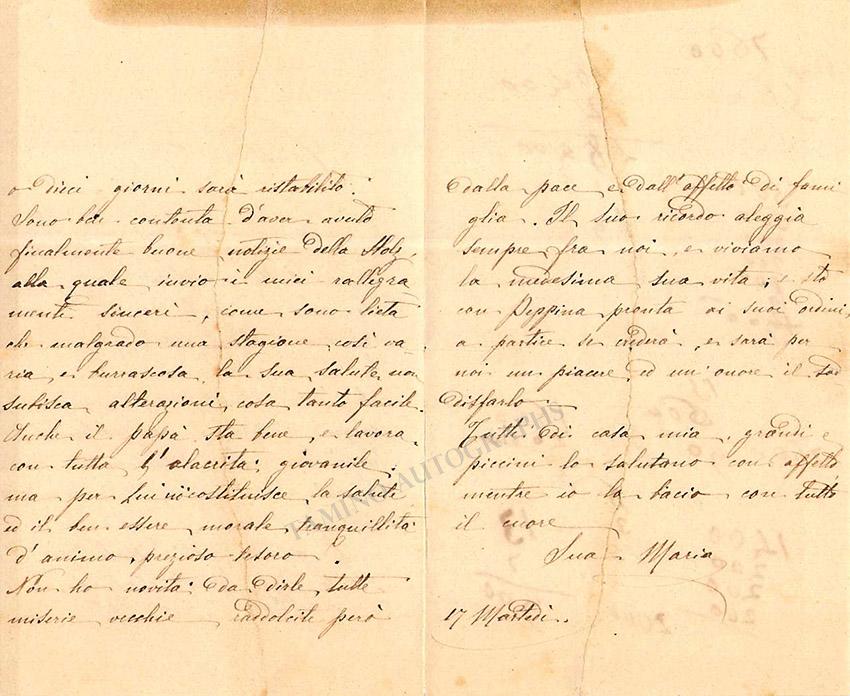 o dieci giorni sarà ristabilito.
Sono ben contenta d'aver avuto
finalmente buone notizie della Stolz,
alla quale invio i miei rallegra
menti sinceri, come sono lieta
che malgrado una stagione così va
ria e burrascosa la sua salute non
subisca alterazioni, cosa tanto facile.
Anche il papà sta bene, e lavora
con tutta l'alacrità giovanile,
ma per Lui ciò costituisce la salute
ed il ben essere morale, tranquillità
d'animo, prezioso tesoro.
Non ho novità da dirle, tutte
miserie vecchie raddolcite però
dalla pace e dall'affetto di fami
glia. Il suo ricordo aleggia
sempre fra noi, e viviamo
la medesima sua vita; e sto
con Peppina pronta ai suoi ordini,
a partire se crederà, e sarà per
noi un piacere, ed un'onore il sod
disfarlo.
Tutti di casa mia, grandi e
piccini lo salutano con affetto
mentre io la bacio con tutto
il cuore
Sua Maria
17 Martedì.
TAMINO AUTOGRAPHS